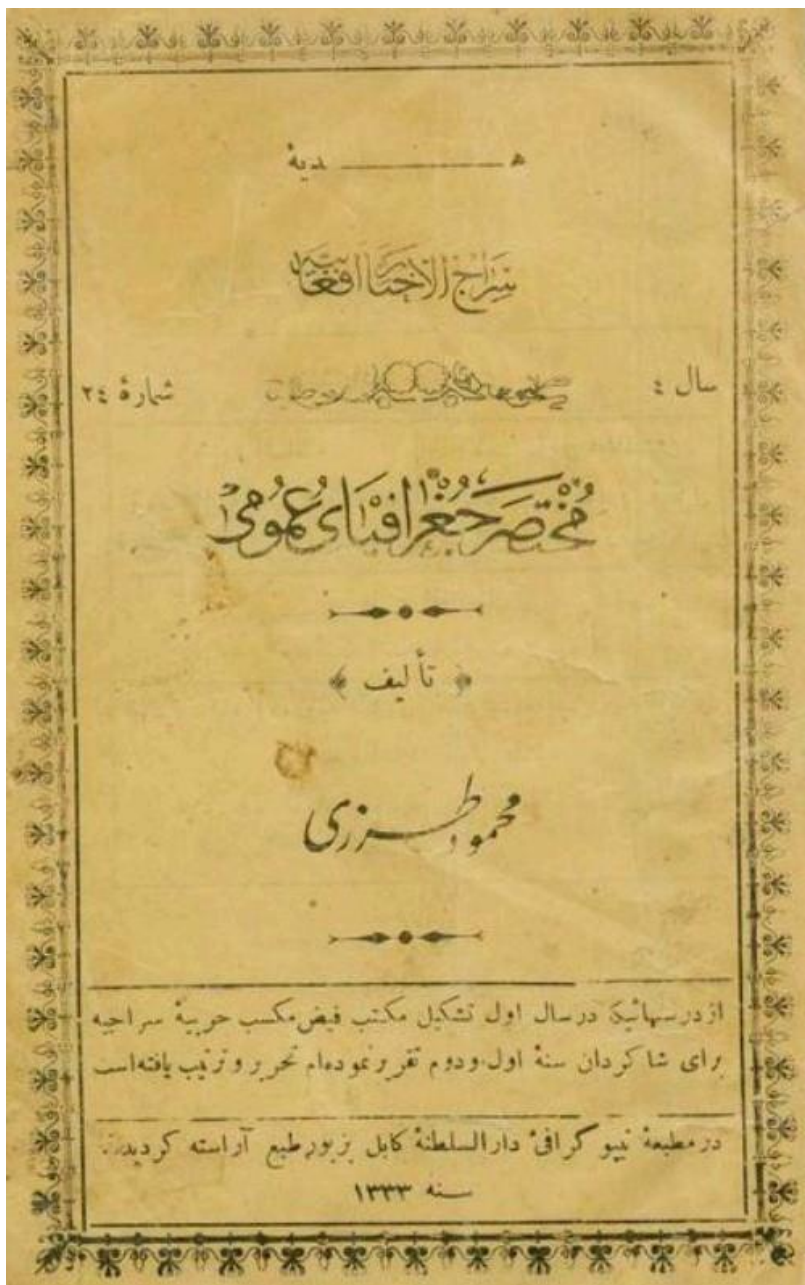 هدیهٔ
سِرَاجُ الْاَخبَار اَفغَانِیَه
سال ٤
شمارهٔ ٢٤
مُخْتَصَر جُغْرَافِیَایِ عُمُومِی
﴿ تألیف ﴾
محمود طرزی
از درسهائیکه در سال اول تشکیل مکتب فیض مکسب حربیهٔ سراجیه
برای شاکردان سنهٔ اول و دوم تقریر نموده‌ام تحریر و ترتیب یافته است
در مطبعهٔ تیپو گرافیٔ دار السلطنهٔ کابل بزیور طبع آراسته کردیده
سنه ١٣٣٣